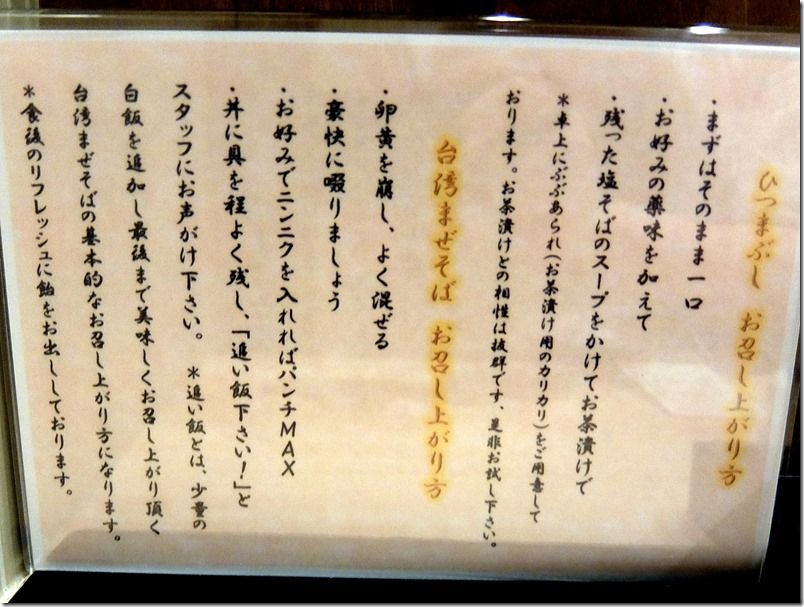 ひつまぶし お召し上がり方
・まずはそのまま一口
・お好みの薬味を加えて
・残った塩そばのスープをかけてお茶漬けで
＊卓上にぶぶあられ(お茶漬け用のカリカリ)をご用意して
おります。お茶漬けとの相性は抜群です、是非お試し下さい。
台湾まぜそば お召し上がり方
・卵黄を崩し、よく混ぜる
・豪快に啜りましょう
・お好みでニンニクを入れればパンチMAX
・丼に具を程よく残し、「追い飯下さい!」と
スタッフにお声がけ下さい。 ＊追い飯とは、少量の
白飯を追加し最後まで美味しくお召し上がり頂く
台湾まぜそばの基本的なお召し上がり方になります。
＊食後のリフレッシュに飴をお出ししております。